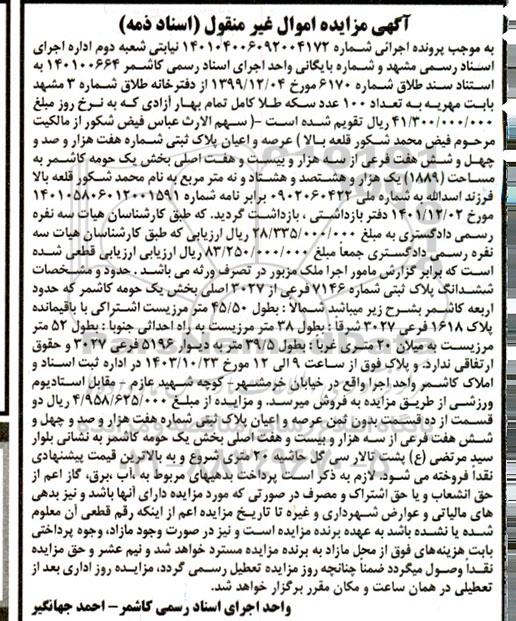 آگهی مزایده اموال غیر منقول (اسناد ذمه)
به موجب پرونده اجرائی شماره ۱۴۰۱۰۴۰۰۶۰۹۲۰۰۴۱۷۲ نیابتی شعبه دوم اداره اجرای
اسناد رسمی مشهد و شماره بایگانی واحد اجرای اسناد رسمی کاشمر ۱۴۰۱۰۰۶۶۴ به
استناد سند طلاق شماره ۶۱۷۰ مورخ ۱۳۹۹/۱۲/۰۴ از دفترخانه طلاق شماره ۳ مشهد
بابت مهریه به تعداد ۱۰۰ عدد سکه طلا کامل تمام بهار آزادی که به نرخ روز مبلغ
۴۱/۳۰۰/۰۰۰/۰۰۰ ریال تقویم شده است –( سهم الارث عباس فیض شکور از مالکیت
مرحوم فیض محمد شکور قلعه بالا ) عرصه و اعیان پلاک ثبتی شماره هفت هزار و صد و
چهل و شش هفت فرعی از سه هزار و بیست و هفت اصلی بخش یک حومه کاشمر به
مساحت (۱۸۸۹) یک هزار و هشتصد و هشتاد و نه متر مربع به نام محمد شکور قلعه بالا
فرزند اسدالله به شماره ملی ۰۹۰۲۰۶۰۴۳۲ برابر نامه شماره ۱۴۰۱۰۵۸۰۶۰۱۲۰۰۱۵۹۱
مورخ ۱۴۰۱/۱۲/۰۲ دفتر بازداشتی ، بازداشت گردید. که طبق کارشناسان هیات سه نفره
رسمی دادگستری به مبلغ ۲۸/۳۳۵/۰۰۰/۰۰۰ ریال ارزیابی که طبق کارشناسان هیات سه
نفره رسمی دادگستری جمعاً مبلغ ۸۳/۲۵۰/۰۰۰/۰۰۰ ریال ارزیابی ارزیابی قطعی شده
است که برابر گزارش مامور اجرا ملک مزبور در تصرف ورثه می باشد . حدود و مشخصات
ششدانگ پلاک ثبتی شماره ۷۱۴۶ فرعی از ۳۰۲۷ اصلی بخش یک حومه کاشمر که حدود
اربعه کاشمر بشرح زیر میباشد شمالاً : بطول ۴۵/۵۰ متر مرزیست اشتراکی با باقیمانده
پلاک ۱۶۱۸ فرعی ۳۰۲۷ شرقاً : بطول ۳۸ متر مرزیست به راه احداثی جنوبا : بطول ۵۲ متر
مرزیست به میلان ۲۰ متری غرباً : بطول ۳۹/۵ متر به دیوار ۵۱۹۶ فرعی ۳۰۲۷ و حقوق
ارتفاقی ندارد. و پلاک فوق از ساعت ۹ الی ۱۲ مورخ ۱۴۰۳/۱۰/۲۳ در اداره ثبت اسناد و
املاک کاشمر واحد اجرا واقع در خیابان خرمشهر– کوچه شهید عازم – مقابل استادیوم
ورزشی از طریق مزایده به فروش میرسد. و مزایده از مبلغ ۴/۹۵۸/۶۲۵/۰۰۰ ریال دو
قسمت از ده قسمت بدون ثمن عرصه و اعیان پلاک ثبتی شماره هفت هزار و صد و چهل و
شش هفت فرعی از سه هزار و بیست و هفت اصلی بخش یک حومه کاشمر به نشانی بلوار
سید مرتضی (ع) پشت تالار سی گل حاشیه ۲۰ متری شروع و به بالاترین قیمت پیشنهادی
نقداً فروخته می شود. لازم به ذکر است پرداخت بدهیهای مربوط به ،آب ،برق، گاز اعم از
حق انشعاب و یا حق اشتراک و مصرف در صورتی که مورد مزایده دارای آنها باشد و نیز بدهی
های مالیاتی و عوارض شهرداری و غیره تا تاریخ مزایده اعم از اینکه رقم قطعی آن معلوم
شده یا نشده باشد به عهده برنده مزایده است و نیز در صورت وجود مازاد، وجوه پرداختی
بابت هزینه‌های فوق از محل مازاد به برنده مزایده مسترد خواهد شد و نیم عشر و حق مزایده
نقداً وصول میگردد ضمناً چنانچه روز مزایده تعطیل رسمی گردد، مزایده روز اداری بعد از
تعطیلی در همان ساعت و مکان مقرر برگزار خواهد شد.
واحد اجرای اسناد رسمی کاشمر– احمد جهانگیر